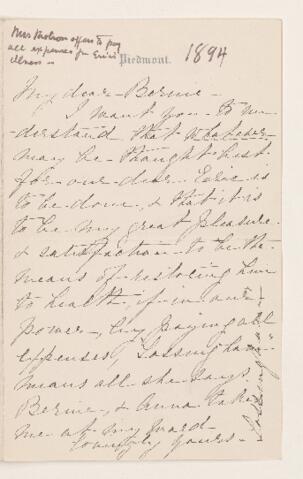 Mrs Robson offers to pay
all expenses for Eric's
illness —
1894
Piedmont.
My dear Bernie –
I want you – to un
-derstand that whatever
may be – thought best
for – our dear Elsie is
to be done, & that it is
to be my great pleasure
& satisfaction – to be the
means of restoring her
to health, if – in our
power –, by paying all
expenses, "Gossingham"
means all she says
Bernie, & Anna take
me at my word –
lovingly yours –